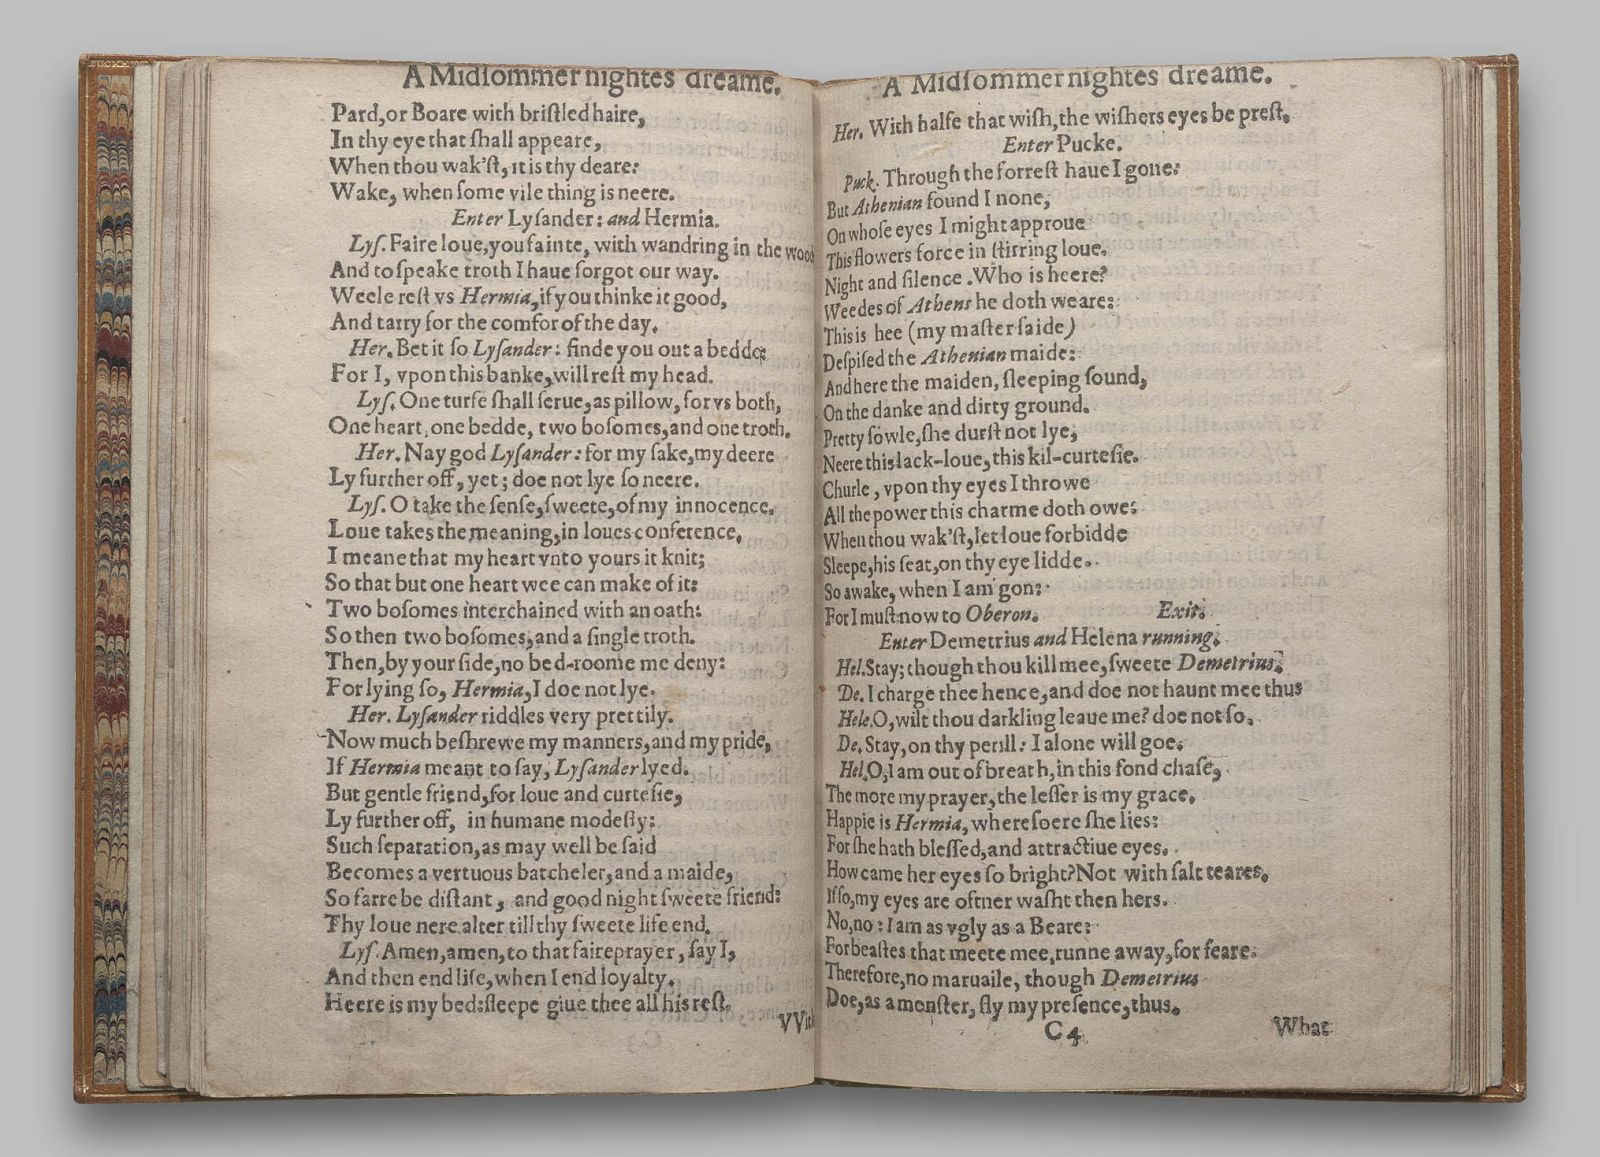 A Midsommer nightes dreame.
Pard, or Boare with bristled haire,
In thy eye that shall appeare,
When thou wak'st, it is thy deare:
Wake, when some vile thing is neere.
Enter Lysander: and Hermia.
Lys. Faire loue, you fainte, with wandring in the wood
And to speake troth I haue forgot our way.
Weele rest vs Hermia, if you thinke it good,
And tarry for the comfor of the day.
Her. Bet it so Lysander: finde you out a bedde:
For I, vpon this banke, will rest my head.
Lys. One turfe shall serue, as pillow, for vs both,
One heart, one bedde, two bosomes, and one troth.
Her. Nay god Lysander: for my sake, my deere
Ly further off, yet; doe not lye so neere.
Lys. O take the sense, sweete, of my innocence,
Loue takes the meaning, in loues conference,
I meane that my heart vnto yours it knit;
So that but one heart wee can make of it:
Two bosomes interchained with an oath:
So then two bosomes, and a single troth.
Then, by your side, no bed-roome me deny:
For lying so, Hermia, I doe not lye.
Her. Lysander riddles very prettily.
Now much beshrewe my manners, and my pride,
If Hermia meant to say, Lysander lyed.
But gentle friend, for loue and curtesie,
Ly further off, in humane modesty:
Such separation, as may well be said
Becomes a vertuous batcheler, and a maide,
So farre be distant, and good night sweete friend:
Thy loue nere alter till thy sweete life end.
Lys. Amen, amen, to that faire prayer, say I,
And then end life, when I end loyalty.
Heere is my bed: sleepe giue thee all his rest.
VVith
A Midsommer nightes dreame.
Her. With halfe that wish, the wishers eyes be prest.
Enter Pucke.
Puck. Through the forrest haue I gone:
But Athenian found I none,
On whose eyes I might approue
This flowers force in stirring loue.
Night and silence. Who is heere?
Weedes of Athens he doth weare:
This is hee (my master saide)
Despised the Athenian maide:
And here the maiden, sleeping sound,
On the danke and dirty ground.
Pretty sowle, she durst not lye,
Neere this lack-loue, this kil-curtesie.
Churle, vpon thy eyes I throwe
All the power this charme doth owe:
When thou wak'st, let loue forbidde
Sleepe, his seat, on thy eye lidde.
So awake, when I am gon:
For I must now to Oberon. Exit.
Enter Demetrius and Helena running.
Hel. Stay; though thou kill mee, sweete Demetrius.
De. I charge thee hence, and doe not haunt mee thus
Hele. O, wilt thou darkling leaue me? doe not so.
De. Stay, on thy perill: I alone will goe.
Hel. O, I am out of breath, in this fond chase,
The more my prayer, the lesser is my grace.
Happie is Hermia, wheresoere she lies:
For she hath blessed, and attractiue eyes.
How came her eyes so bright? Not with salt teares.
If so, my eyes are oftner washt then hers.
No, no: I am as vgly as a Beare:
For beastes that meete mee, runne away, for feare.
Therefore, no maruaile, though Demetrius
Doe, as a monster, fly my presence, thus.
C4 What